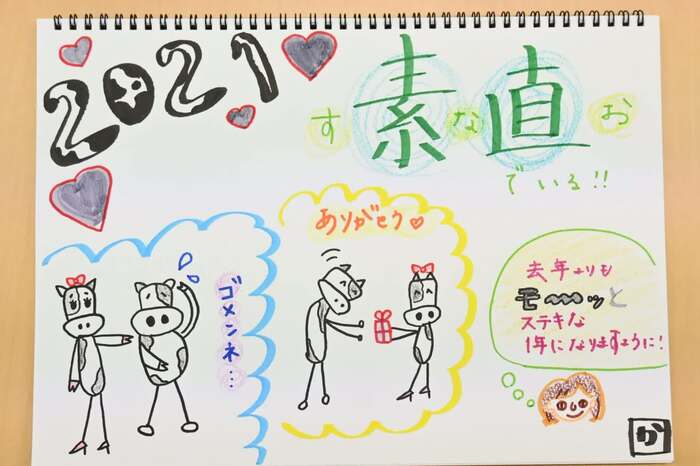 2021
す素な直お
でいる!!
ゴメンネ…
ありがとう♡
去年よりも
モーーッと
ステキな
1年になりますように!
か